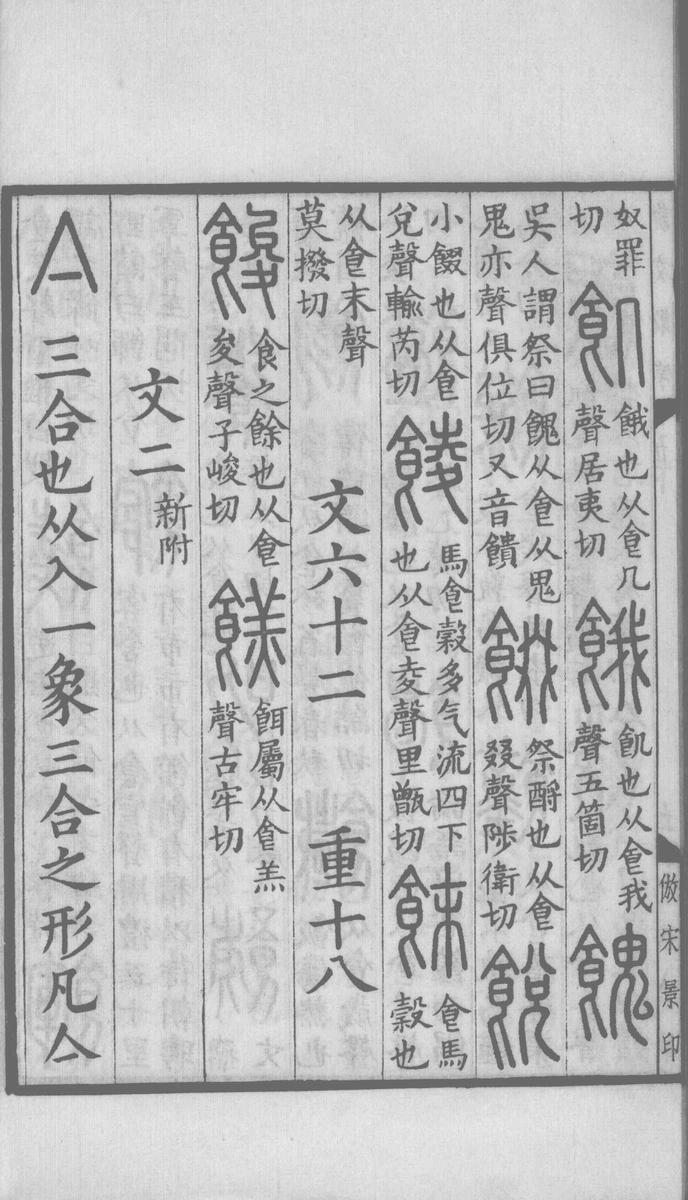 奴罪切飢餓也从𩙿几聲居夷切餓飢也从𩙿我聲五箇切餽
吳人謂祭曰餽从𩙿从鬼鬼亦聲俱位切又音饋餟祭酹也从𩙿叕聲陟衛切䬽
小餟也从𩙿兌聲輸芮切䬋馬𩙿穀多气流四下也从𩙿夌聲里甑切䬴𩙿馬穀也
从𩙿末聲莫撥切
文六十二 重十八
餕食之餘也从𩙿夋聲子峻切餻餌屬从𩙿羔聲古牢切
文二新附
亼三合也从入一象三合之形凡亼
倣宋景印